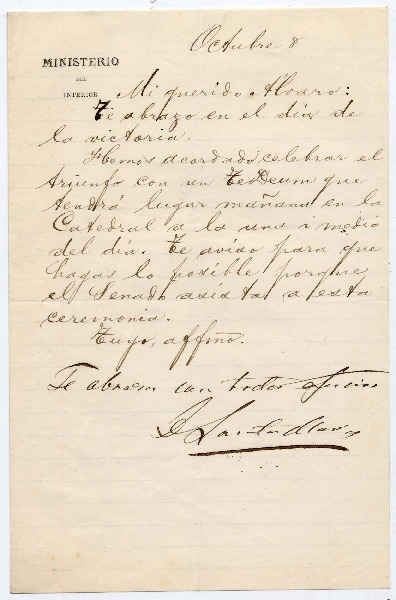 Octubre 8
MINISTERIO
DEL
INTERIOR
Mi querido Alvaro:
Te abrazo en el día de
la victoria.
Hemos acordado celebrar el
triunfo con un TeDeum que
tendrá lugar mañana en la
Catedral a la una i media
del día. Te aviso para que
hagas lo posible porque
el Senado asista a esta
ceremonia.
Tuyo, affmo.
Te abraza con todo
D Santa Maria